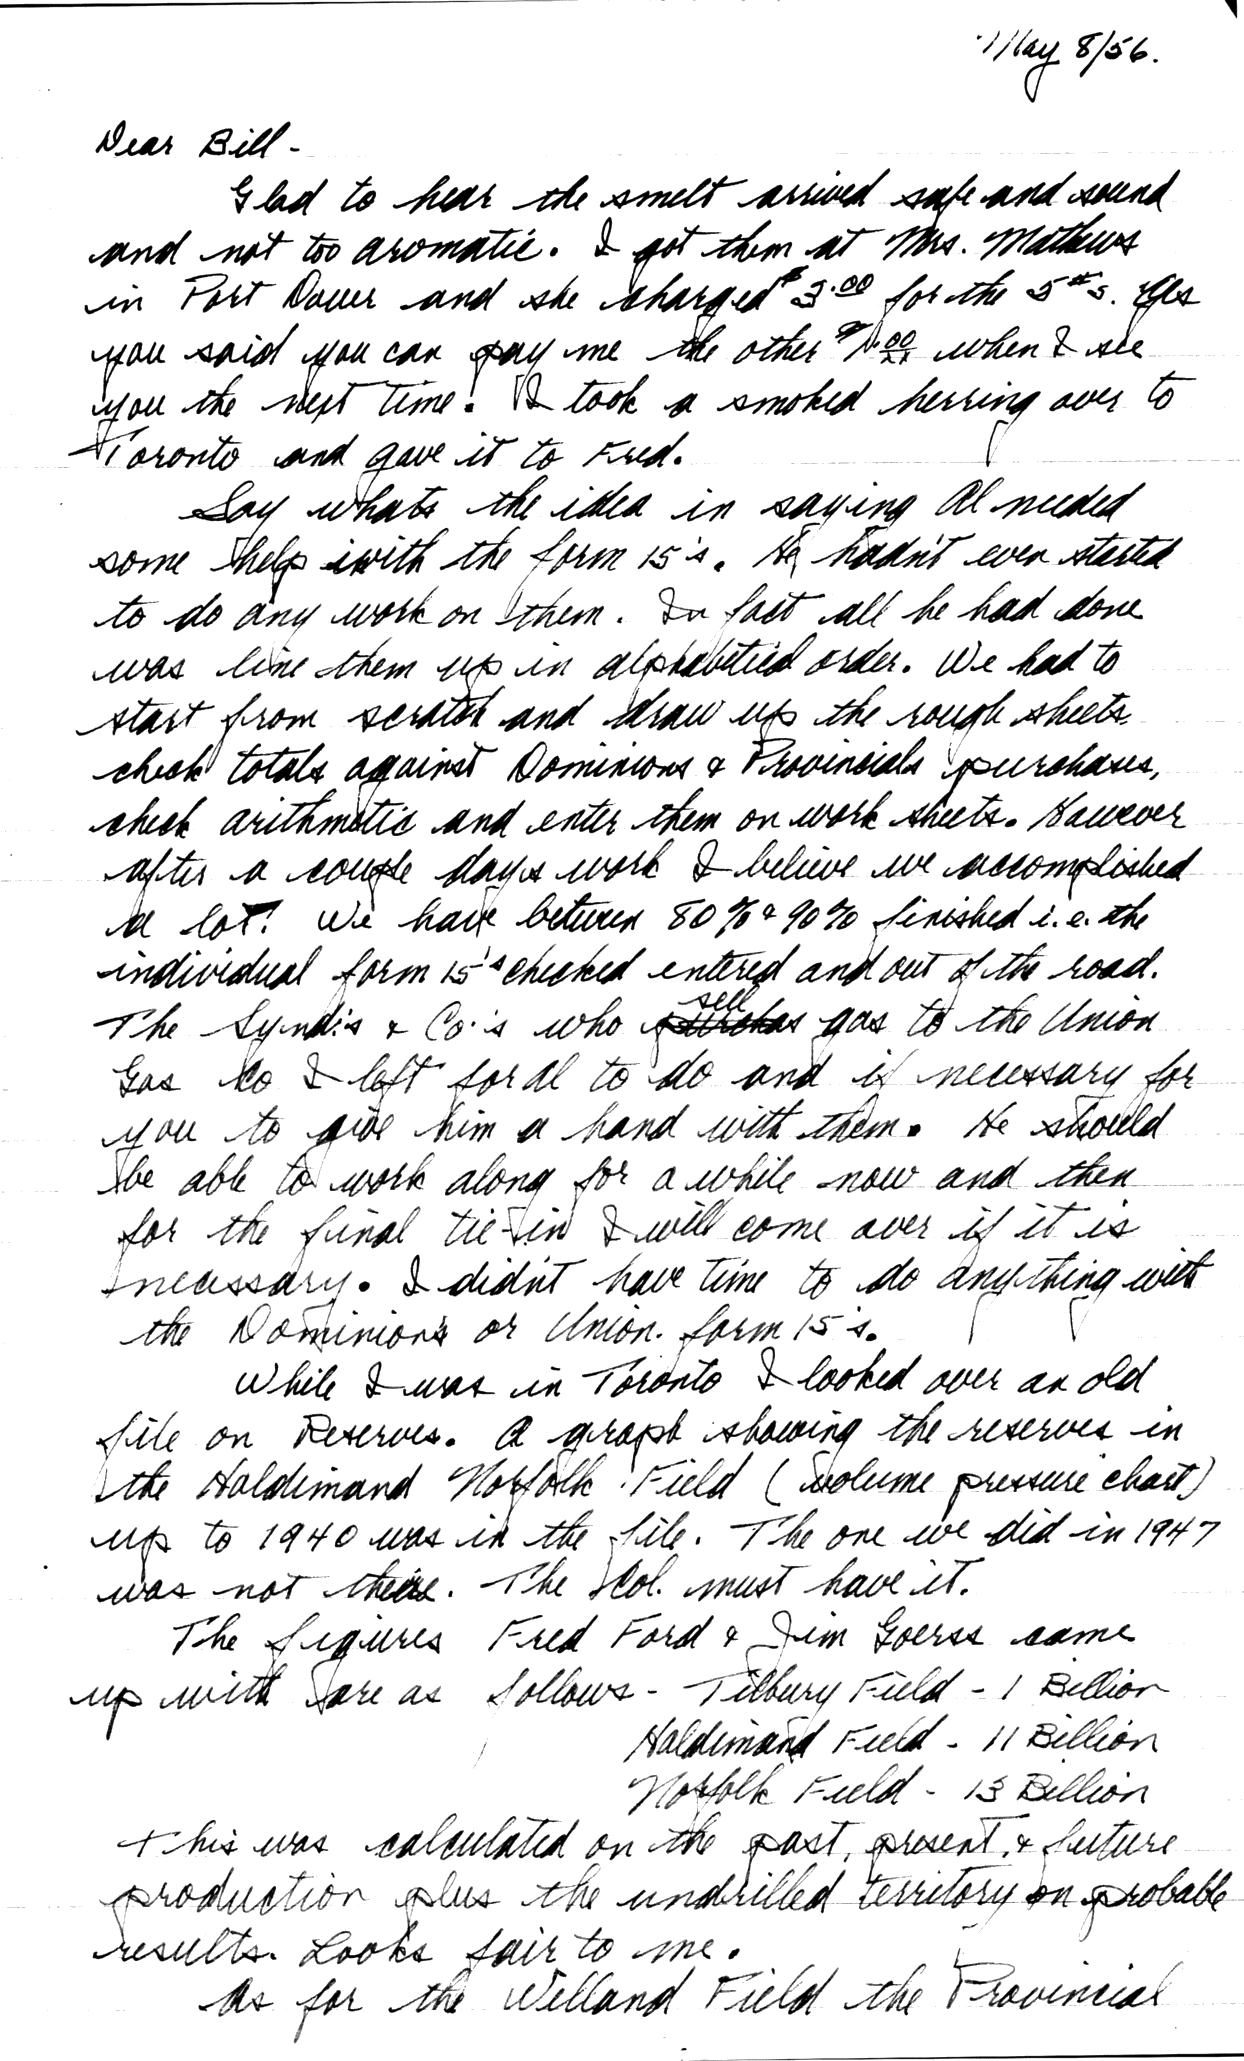 May 8/56.
Dear Bill -
Glad to hear the smelt arrived safe and sound
and not too aromatic. I got them at Mrs. Mathews
in Port Dover and she charged $3.00 for the 5#s. As
you said you can pay me the other $1.00 when I see
you the next time. I took a smoked herring over to
Toronto and gave it to Fred.
Say whats the idea in saying Al needed
some help with the form 15's. He hadn't even started
to do any work on them. In fact all he had done
was line them up in alphabetical order. We had to
start from scratch and draw up the rough sheets,
check totals against Dominions & Provincials purchases,
check arithmetic and enter them on work sheets. However
after a couple days work I believe we accomplished
a lot. We have between 80% & 90% finished i.e. the
individual form 15's checked entered and out of the road.
The Synd.'s & Co.'s who sell gas to the Union
Gas Co I left for Al to do and if necessary for
you to give him a hand with them. He should
be able to work along for a while now and then
for the final tie-in I will come over if it is
necessary. I didn't have time to do anything with
the Dominion's or Union. form 15's.
While I was in Toronto I looked over an old
file on Reserves. A graph showing the reserves in
the Haldimand Norfolk Field (volume pressure chart)
up to 1940 was in the file. The one we did in 1947
was not there. The Col. must have it.
The figures Fred Ford & Jim Goerss came
up with are as follows - Tilbury Field - 1 Billion
Haldimand Field - 11 Billion
Norfolk Field - 13 Billion
This was calculated on the past, present, & future
production plus the undrilled territory on probable
results. Looks fair to me.
As for the Welland Field the Provincial